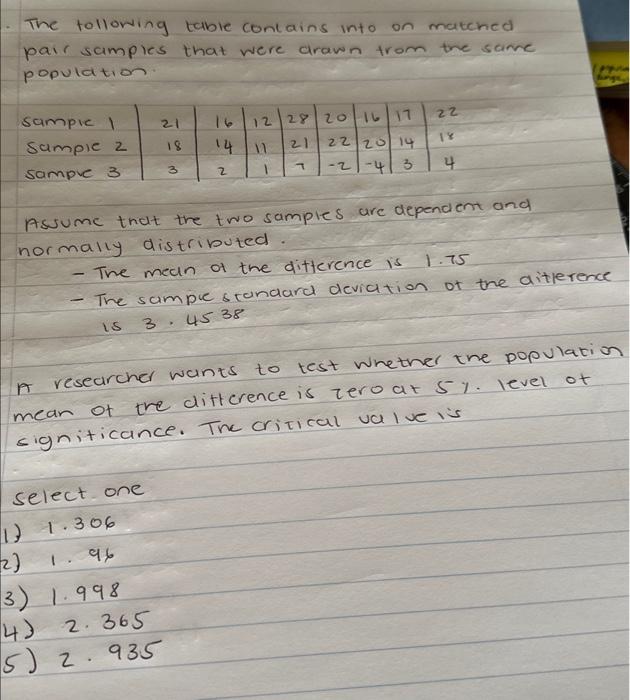 . The following table contains info on matched
pair samples that were drawn from the same
population.
sample 1 21 16 12 28 20 16 17 22
sample 2 18 14 11 21 22 20 14 18
sample 3 3 2 1 7 -2 -4 3 4
Assume that the two samples are dependent and
normally distributed.
- The mean of the difference is 1.75
- The sample standard deviation of the difference
is 3.4538
A researcher wants to test whether the population
mean of the difference is zero at 5%. level of
significance. The critical value is
select one
1) 1.306
2) 1.96
3) 1.998
4) 2.365
5) 2.935